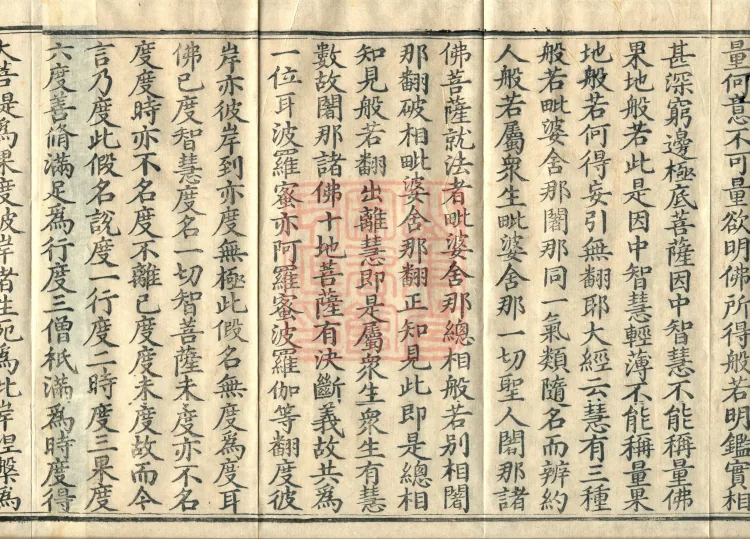 量何意不可量欲明佛所得般若明鑑實相
甚深窮邊極底菩薩因中智慧不能稱量佛
果地般若此是因中智慧輕薄不能稱量果
地般若何得妄引無翻耶大經云慧有三種
般若毗婆舍那闍那同一氣類隨名而辨約
人般若屬衆生毗婆舍那一切聖人闍那諸
佛菩薩就法者毗婆舍那總相般若別相闍
那翻破相毗婆舍那翻正知見此即是總相
知見般若翻出離慧即是屬衆生衆生有慧
數故闍那諸佛十地菩薩有決斷義故共爲
一位耳波羅蜜亦阿羅蜜波羅伽等翻度彼
岸亦彼岸到亦度無極此假名無度爲度耳
佛已度智慧度名一切智菩薩未度亦不名
度度時亦不名度不離已度度未度故而今
言乃度此假名說度一行度二時度三果度
六度善脩滿足爲行度三僧祇滿爲時度得
大菩提爲果度彼岸者生死爲此岸涅槃爲